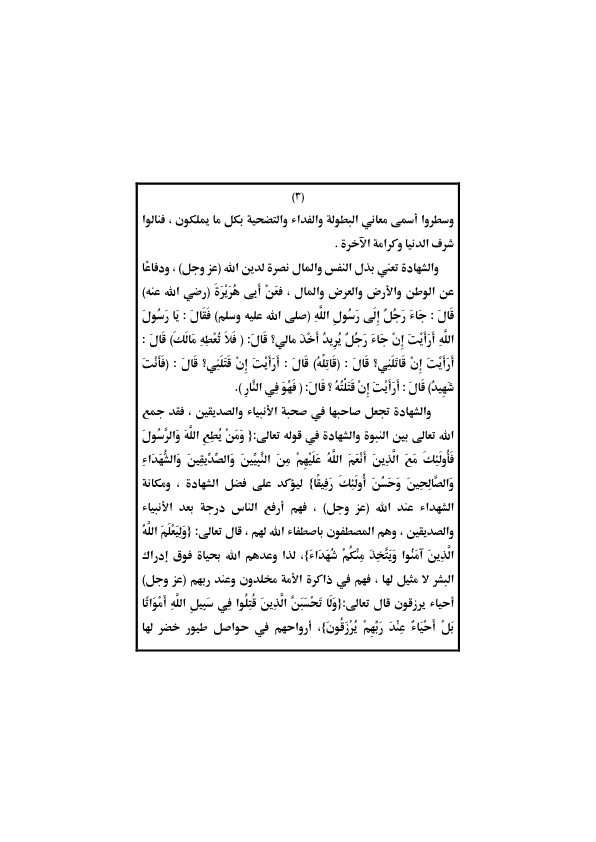 (٣)
وسطروا أسمى معاني البطولة والفداء والتضحية بكل ما يملكون ، فنالوا
شرف الدنيا وكرامة الآخرة .
والشهادة تعني بذل النفس والمال نصرة لدين الله (عز وجل) ، ودفاعًا
عن الوطن والأرض والعرض والمال ، فعَنْ أَبِى هُرَيْرَةَ (رضي الله عنه)
قَالَ : جَاءَ رَجُلٌ إِلَى رَسُولِ اللَّهِ (صلى الله عليه وسلم) فَقَالَ : يَا رَسُولَ
اللَّهِ أَرَأَيْتَ إِنْ جَاءَ رَجُلٌ يُرِيدُ أَخْذَ مالي؟ قَالَ: ( فَلاَ تُعْطِهِ مَالَكَ) قَالَ :
أَرَأَيْتَ إِنْ قَاتَلَنِي؟ قَالَ : (قَاتِلْهُ) قَالَ : أَرَأَيْتَ إِنْ قَتَلَنِي؟ قَالَ : (فَأَنْتَ
شَهِيدٌ) قَالَ : أَرَأَيْتَ إِنْ قَتَلْتُهُ ؟ قَالَ: ( فَهُوَ فِي النَّارِ ).
والشهادة تجعل صاحبها في صحبة الأنبياء والصديقين ، فقد جمع
الله تعالى بين النبوة والشهادة في قوله تعالى:{ وَمَنْ يُطِعِ اللَّهَ وَالرَّسُولَ
فَأُولَئِكَ مَعَ الَّذِينَ أَنْعَمَ اللَّهُ عَلَيْهِمْ مِنَ النَّبِيِّينَ وَالصِّدِّيقِينَ وَالشُّهَدَاءِ
وَالصَّالِحِينَ وَحَسُنَ أُولَئِكَ رَفِيقًا} ليؤكد على فضل الشهادة ، ومكانة
الشهداء عند الله (عز وجل) ، فهم أرفع الناس درجة بعد الأنبياء
والصديقين ، وهم المصطفون باصطفاء الله لهم ، قال تعالى: {وَلِيَعْلَمَ اللَّهُ
الَّذِينَ آمَنُوا وَيَتَّخِذَ مِنْكُمْ شُهَدَاءَ}، لذا وعدهم الله بحياة فوق إدراك
البشر لا مثيل لها ، فهم في ذاكرة الأمة مخلدون وعند ربهم (عز وجل)
أحياء يرزقون قال تعالى:{وَلَا تَحْسَبَنَّ الَّذِينَ قُتِلُوا فِي سَبِيلِ اللَّهِ أَمْوَاتًا
بَلْ أَحْيَاءٌ عِنْدَ رَبِّهِمْ يُرْزَقُونَ}، أرواحهم في حواصل طيور خضر لها